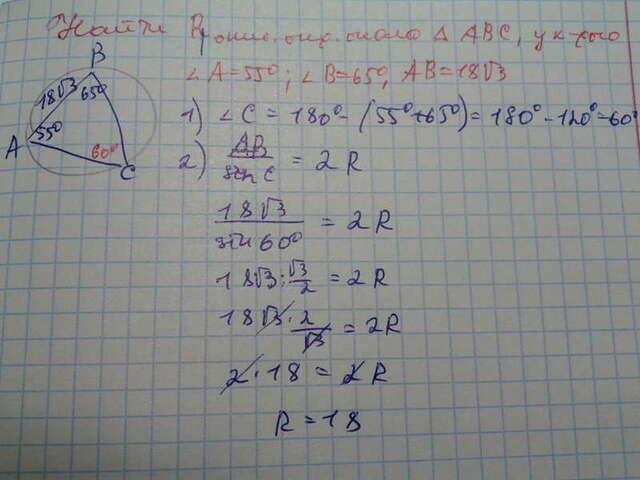 Найти R окр. опр. около △ ABC, у к-рого
∠A=55°; ∠B=65°, AB=18√3
B
18√3
65°
A
55°
60°
C
1) ∠C = 180° - (55°+65°) = 180° - 120° = 60°
2) AB / sin C = 2R
18√3 / sin 60° = 2R
18√3 : √3/2 = 2R
18√3 · 2/√3 = 2R
2 · 18 = 2R
R = 18